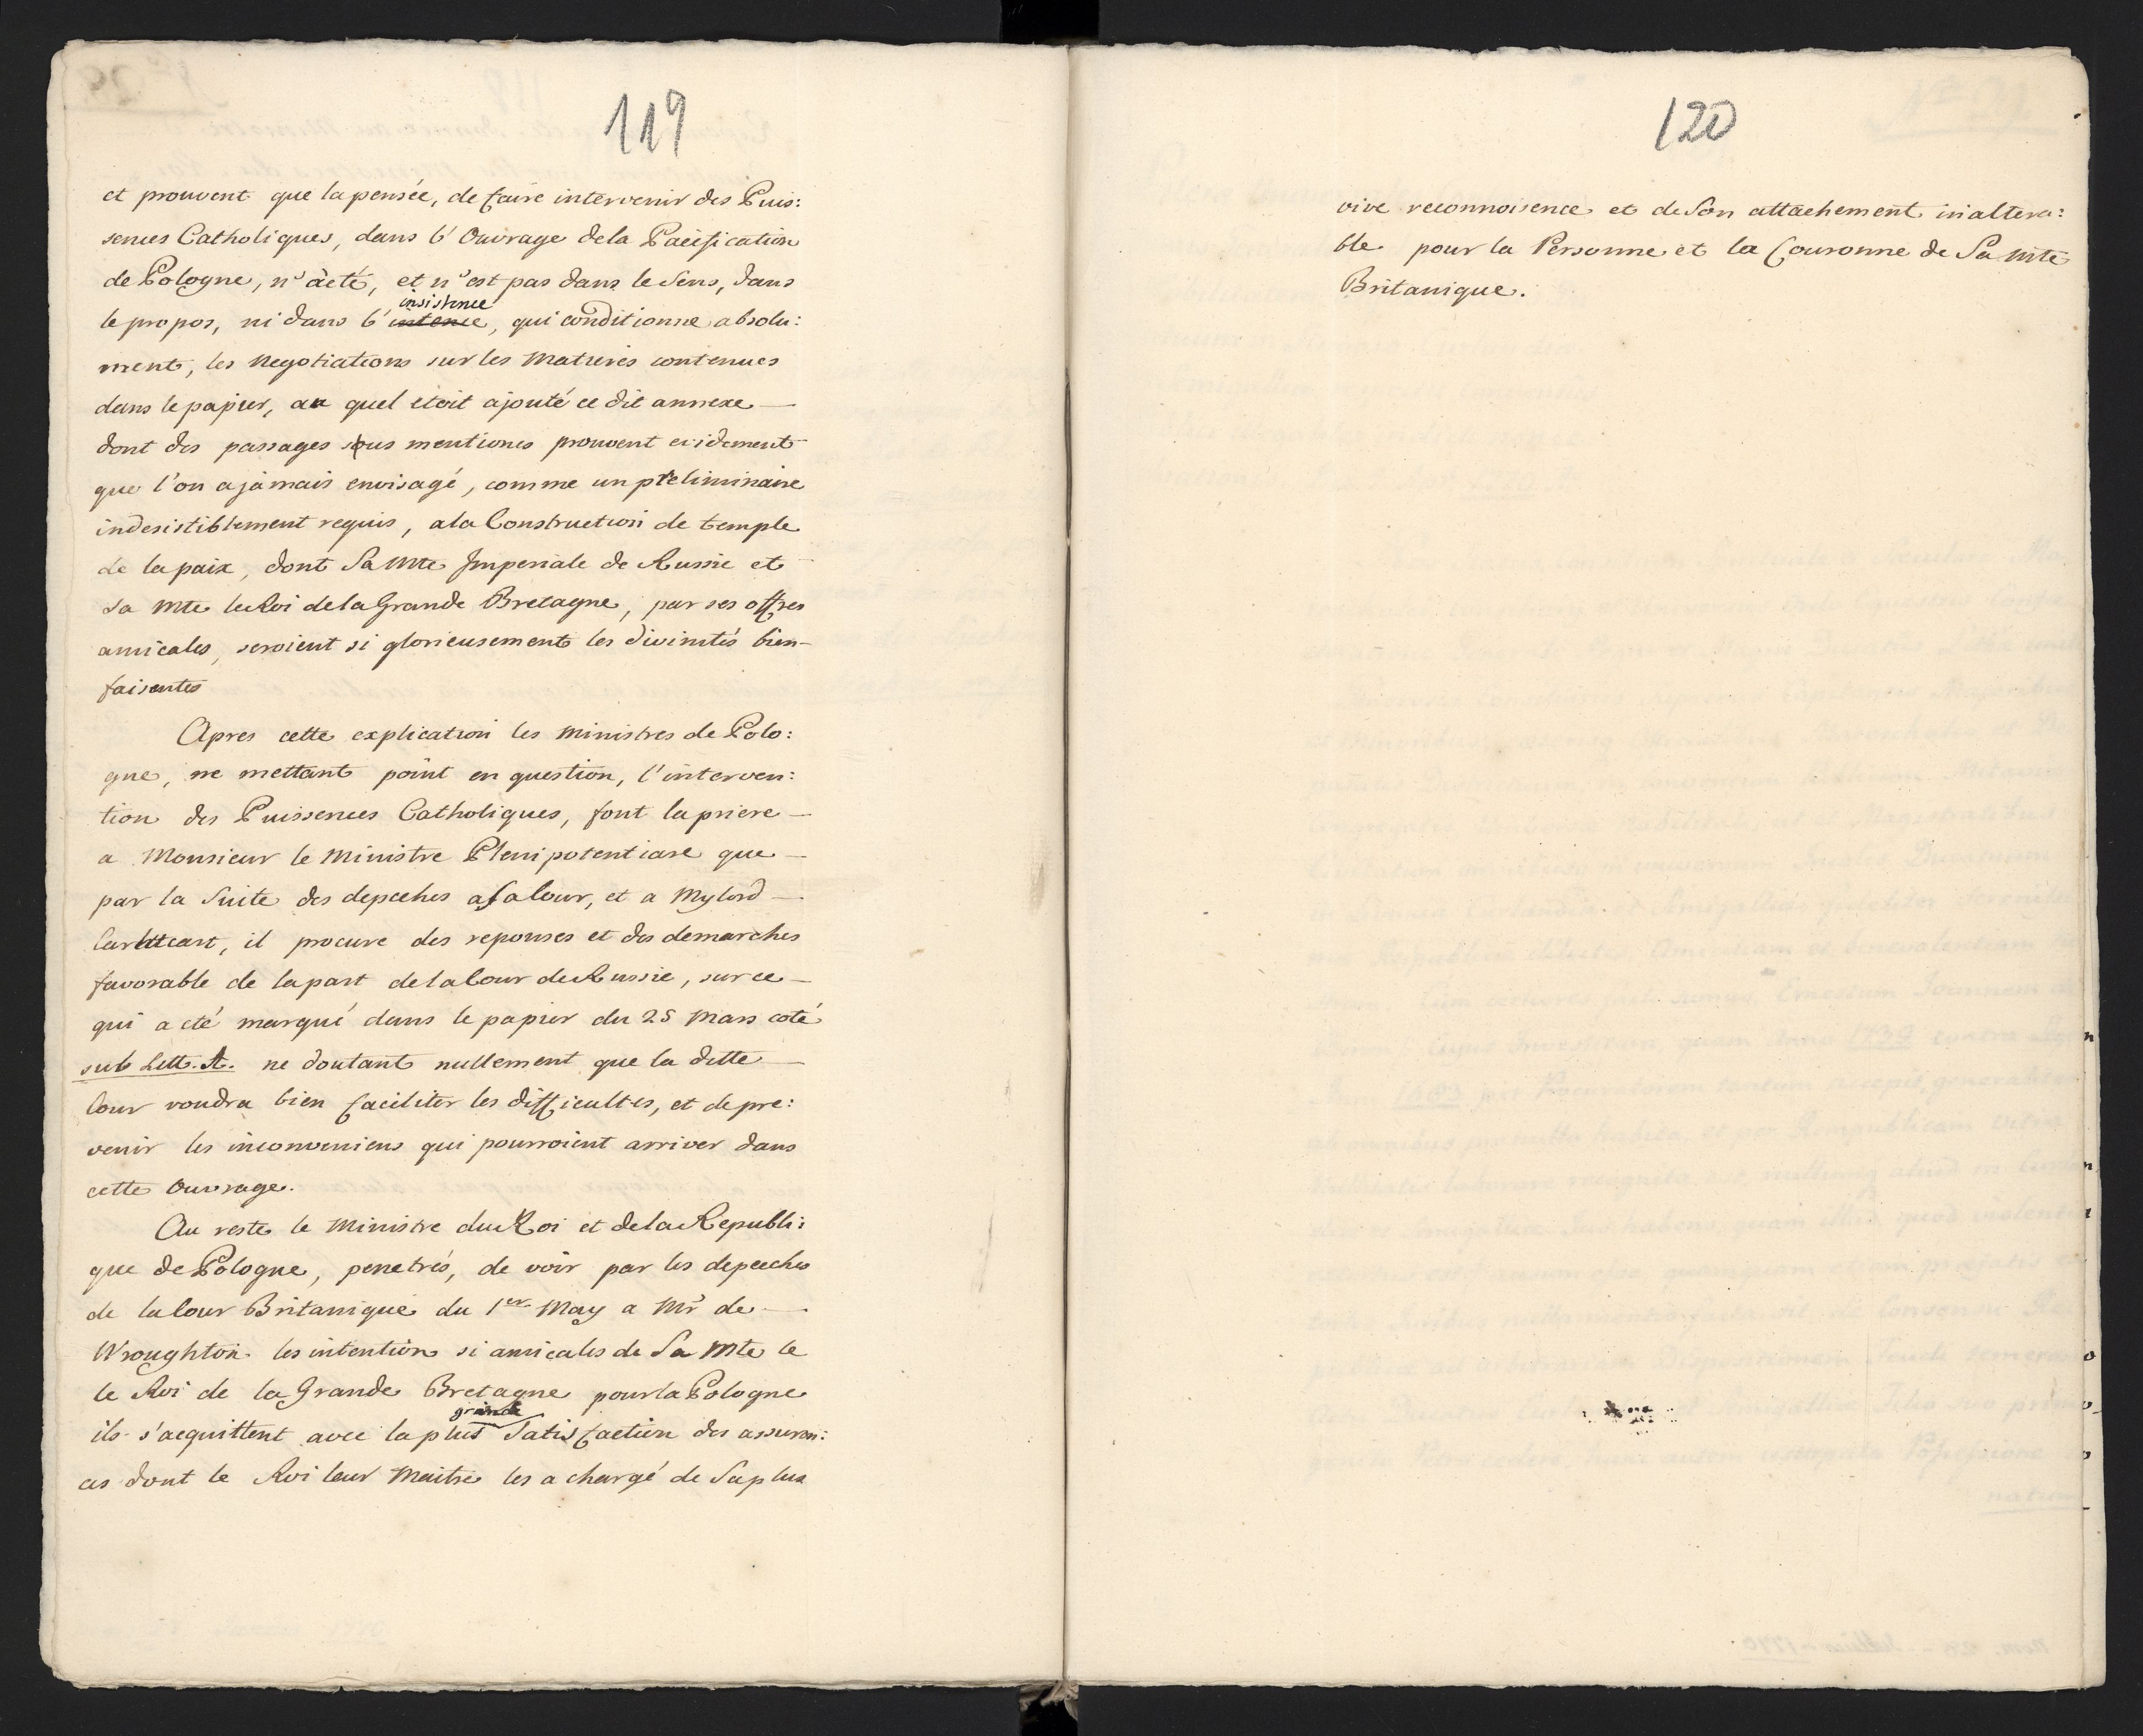 119
et prouvent que la pensée, de faire intervenir des Puis:
sences Catholiques, dans l'Ouvrage de la Pacification
de Pologne, n'a eté, et n'est pas dans le Sens, dans
insistence
le propos, ni dans l', qui conditionne absolu:
ment, les Negotiations sur les Matieres contenues
dans le papier, au quel etoit ajouté ce dit annexe —
dont des passages sous mentiones prouvent evidement
que l'on a jamais envisagé, comme un preliminaire
indesistiblement requis, a la Construction de temple
de la paix, dont Sa Mte Imperiale de Russie et
Sa Mte le Roi de la Grande Bretagne, par ses offres
amicales, seroient si glorieusement les divinités bien-
faisentes
Apres cette explication les Ministres de Polo:
gne, ne mettant point en question, l'interven:
tion des Puissences Catholiques, font la priere —
a Monsieur le Ministre Plenipotentiare que —
par la Suite des depeches a sa Cour, et a Mylord —
il procure des reponses et des demarches
favorable de la part de la Cour de Russie, sur ce —
qui a eté marqué dans le papier du 25 Mars coté
sub Litt. A. ne doutant nullement que la ditte —
Cour voudra bien faciliter les difficultes, et de pre:
venir les inconveniens qui pourroient arriver dans
cette Ouvrage.
Au reste le Ministre du Roi et de la Republi:
que de Pologne, penetrés, de voir par les depeches
de la Cour Britanique du 1er May a Mr de —
Wroughton les intention si amicales de Sa Mte le
le Roi de la Grande Bretagne pour la Pologne
grande
ils s'acquittent avec la plus Satisfaction des assuran:
ces dont le Roi leur Maitre les a chargé de Sa plus
120
vive reconnoisence et de Son attachement inaltera:
ble pour la Personne et la Couronne de Sa Mte
Britanique.